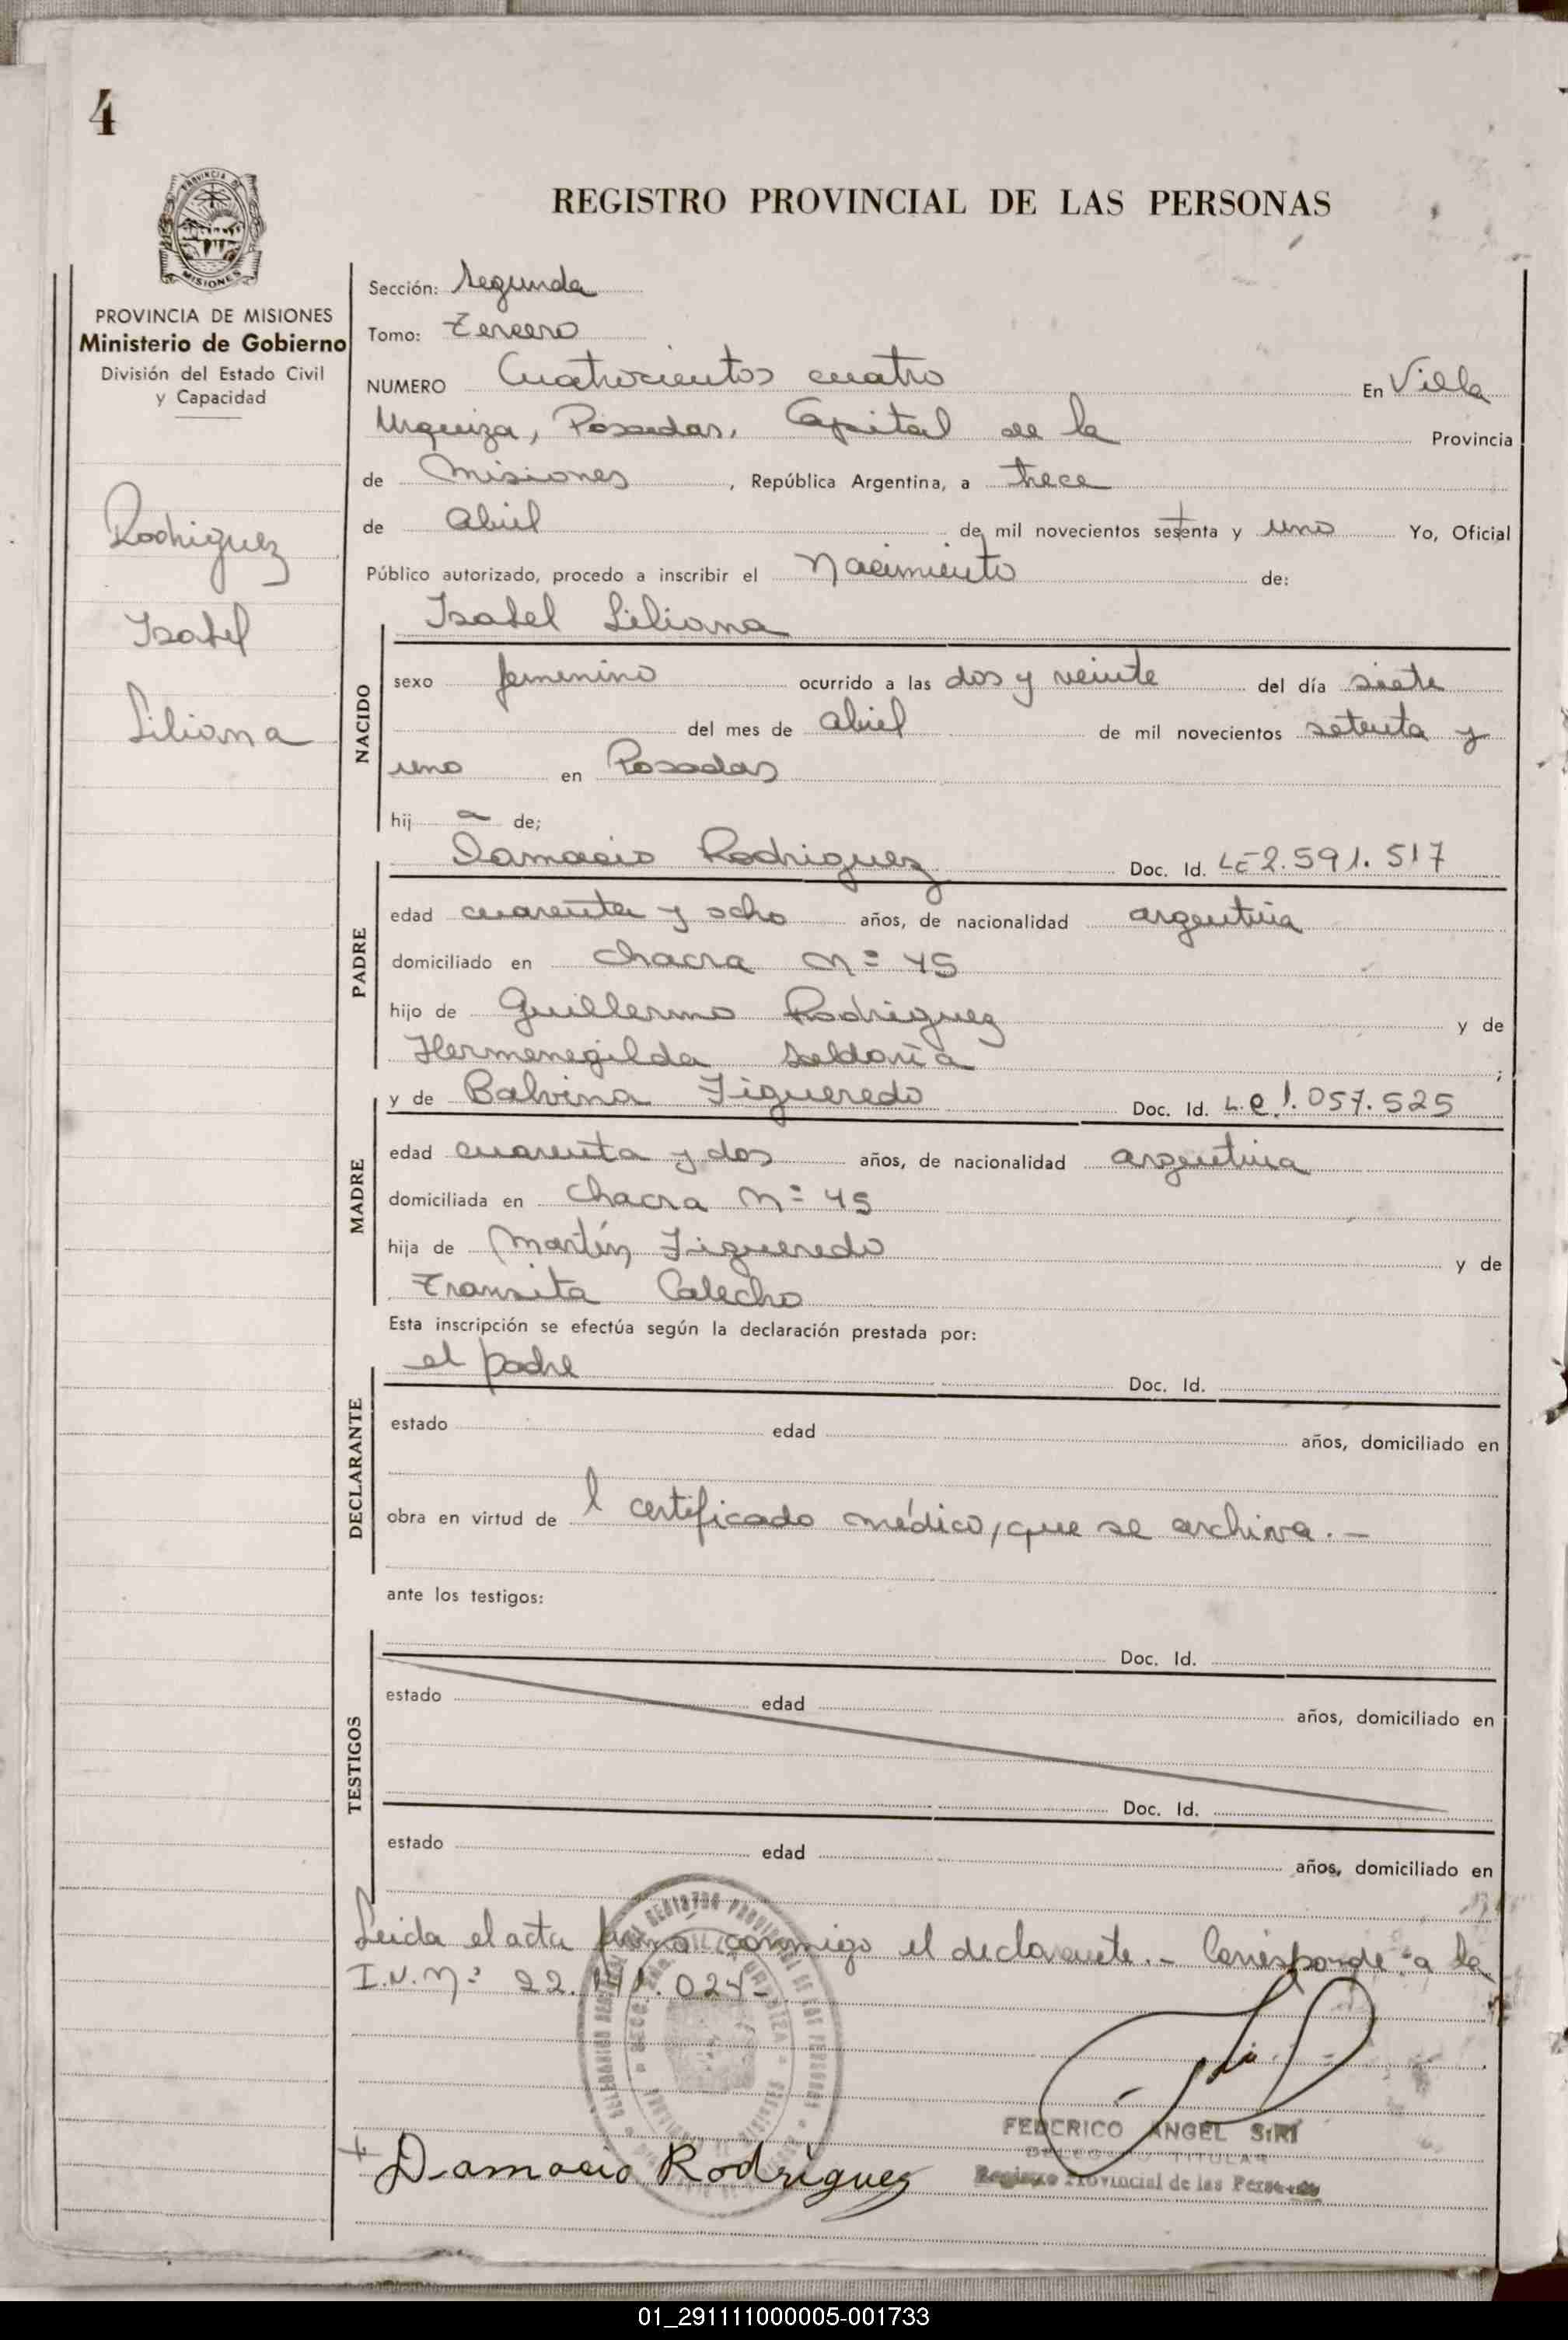 4
PROVINCIA DE
MISIONES
REGISTRO PROVINCIAL DE LAS PERSONAS
PROVINCIA DE MISIONES
Ministerio de Gobierno
División del Estado Civil
y Capacidad
Rodriguez
Isabel
Liliana
Sección: Segunda
Tomo: Tercero
NUMERO Cuatrocientos cuatro En Villa
Urquiza, Posadas, Capital de la Provincia
de Misiones, República Argentina, a trece
de abril de mil novecientos setenta y uno Yo, Oficial
Público autorizado, procedo a inscribir el Nacimiento de:
Isabel Liliana
NACIDO
sexo femenino ocurrido a las dos y veinte del día siete
del mes de abril de mil novecientos setenta y
uno en Posadas
hij a de;
Damacio Rodriguez Doc. Id. LE 2.591.517
PADRE
edad cuarenta y ocho años, de nacionalidad argentina
domiciliado en chacra Nº 45
hijo de Guillermo Rodriguez y de
Hermenegilda Saldaría ;
y de Balvina Figueredo Doc. Id. L.C 1.057.525
MADRE
edad cuarenta y dos años, de nacionalidad argentina
domiciliada en chacra Nº 45
hija de Martín Figueredo y de
Transita Calecho
Esta inscripción se efectúa según la declaración prestada por:
el padre Doc. Id.
DECLARANTE
estado edad años, domiciliado en
obra en virtud de l certificado médico, que se archiva.-
ante los testigos:
Doc. Id.
TESTIGOS
estado edad años, domiciliado en
Doc. Id.
estado edad años, domiciliado en
Leida el acta firmó conmigo el declarante.- Corresponde a la
I.N.Nº 22. 024-
FEDERICO ANGEL SIRI
DELEGADO TITULAR
Registro Provincial de las Personas
Damacio Rodríguez
01_291111000005-001733